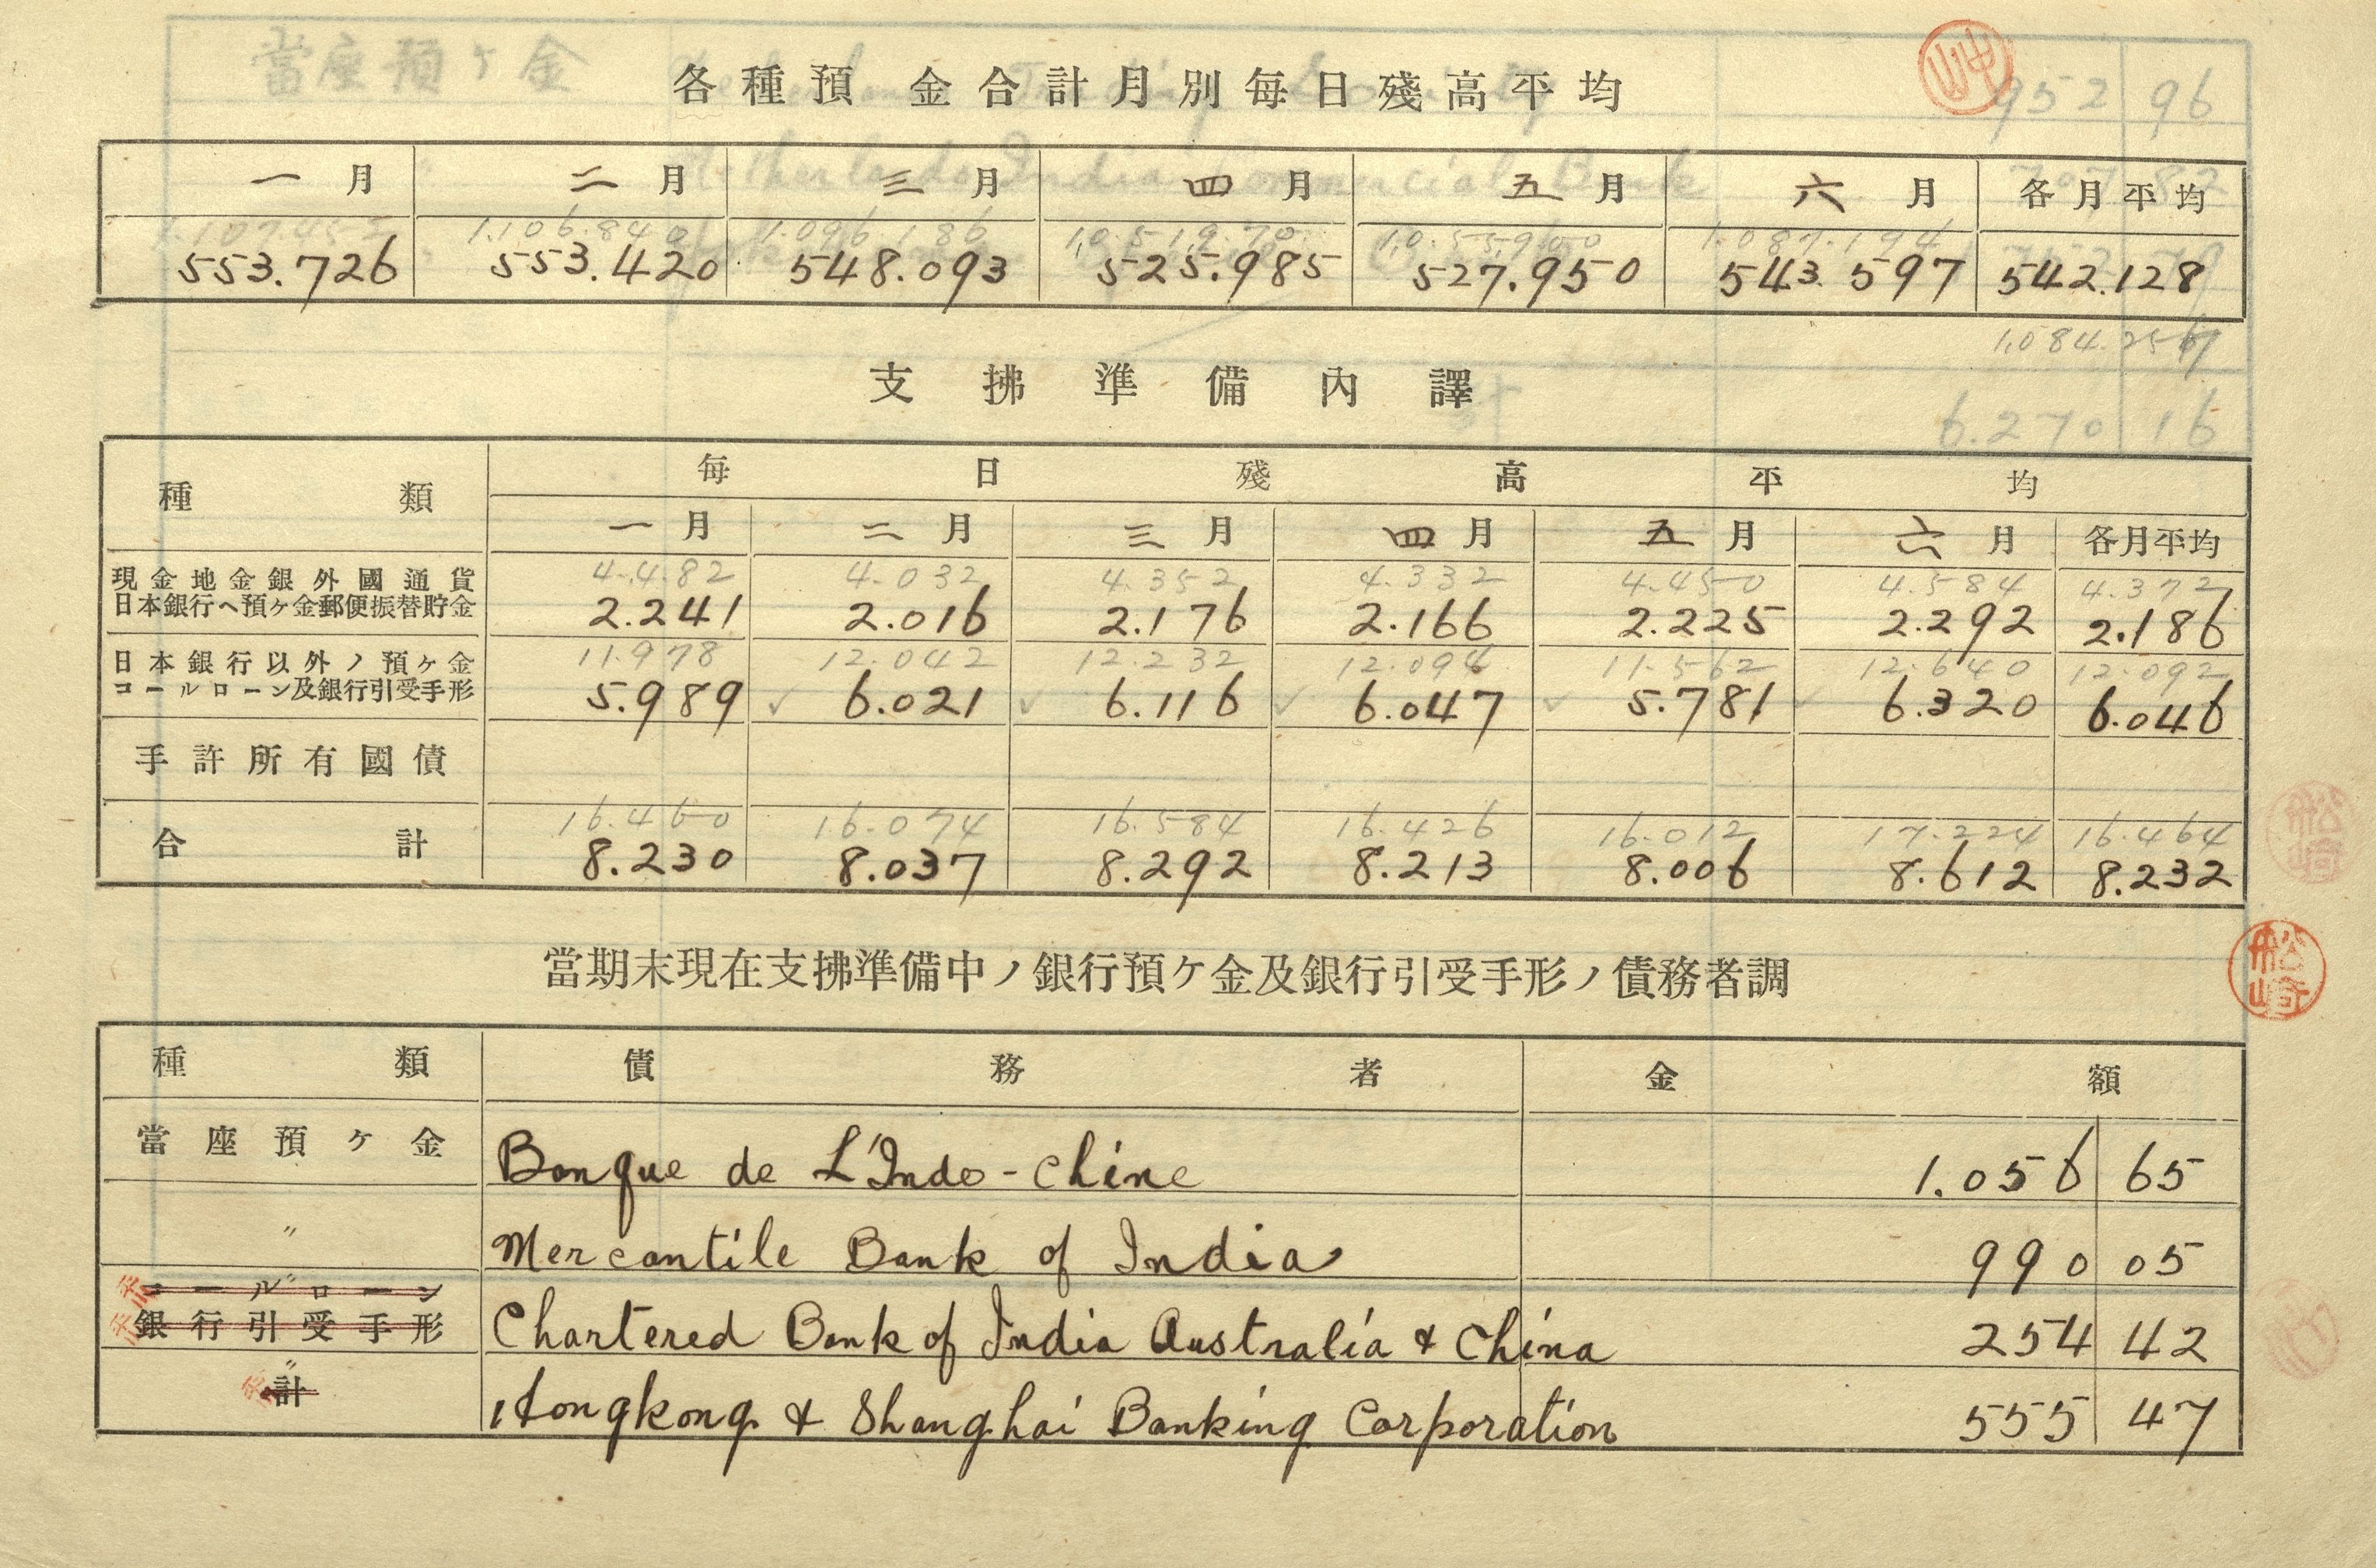 各種預金合計月別每日殘高平均
一月 二月 三月 四月 五月 六月 各月平均
1.107.452 1.106.840 1.096.186 1.0519.70 1.055900 1.087.194
553.726 553.420 548.093 525.985 527.950 543.597 542.128
支拂準備內譯
種類 每日殘高平均
一月 二月 三月 四月 五月 六月 各月平均
4.482 4.032 4.352 4.332 4.450 4.584 4.372
現金地金銀外國通貨
日本銀行ヘ預ヶ金郵便振替貯金 2.241 2.016 2.176 2.166 2.225 2.292 2.186
11.978 12.042 12.232 12.094 11.562 12.640 12.092
日本銀行以外ノ預ヶ金
コールローン及銀行引受手形 5.989 6.021 6.116 6.047 5.781 6.320 6.046
手許所有國債
16.460 16.074 16.584 16.426 16.012 17.224 16.464
合計 8.230 8.037 8.292 8.213 8.006 8.612 8.232
當期末現在支拂準備中ノ銀行預ヶ金及銀行引受手形ノ債務者調
種類 債務者 金額
當座預ヶ金 Banque de L'Indo-Chine 1.056 65
〃 Mercantile Bank of India 990 05
コールローン
銀行引受手形 Chartered Bank of India Australia & China 254 42
〃
計 Hongkong & Shanghai Banking Corporation 555 47
當座預ヶ金
Netherlands India Commercial Bank
952 96
6.270 16
松崎